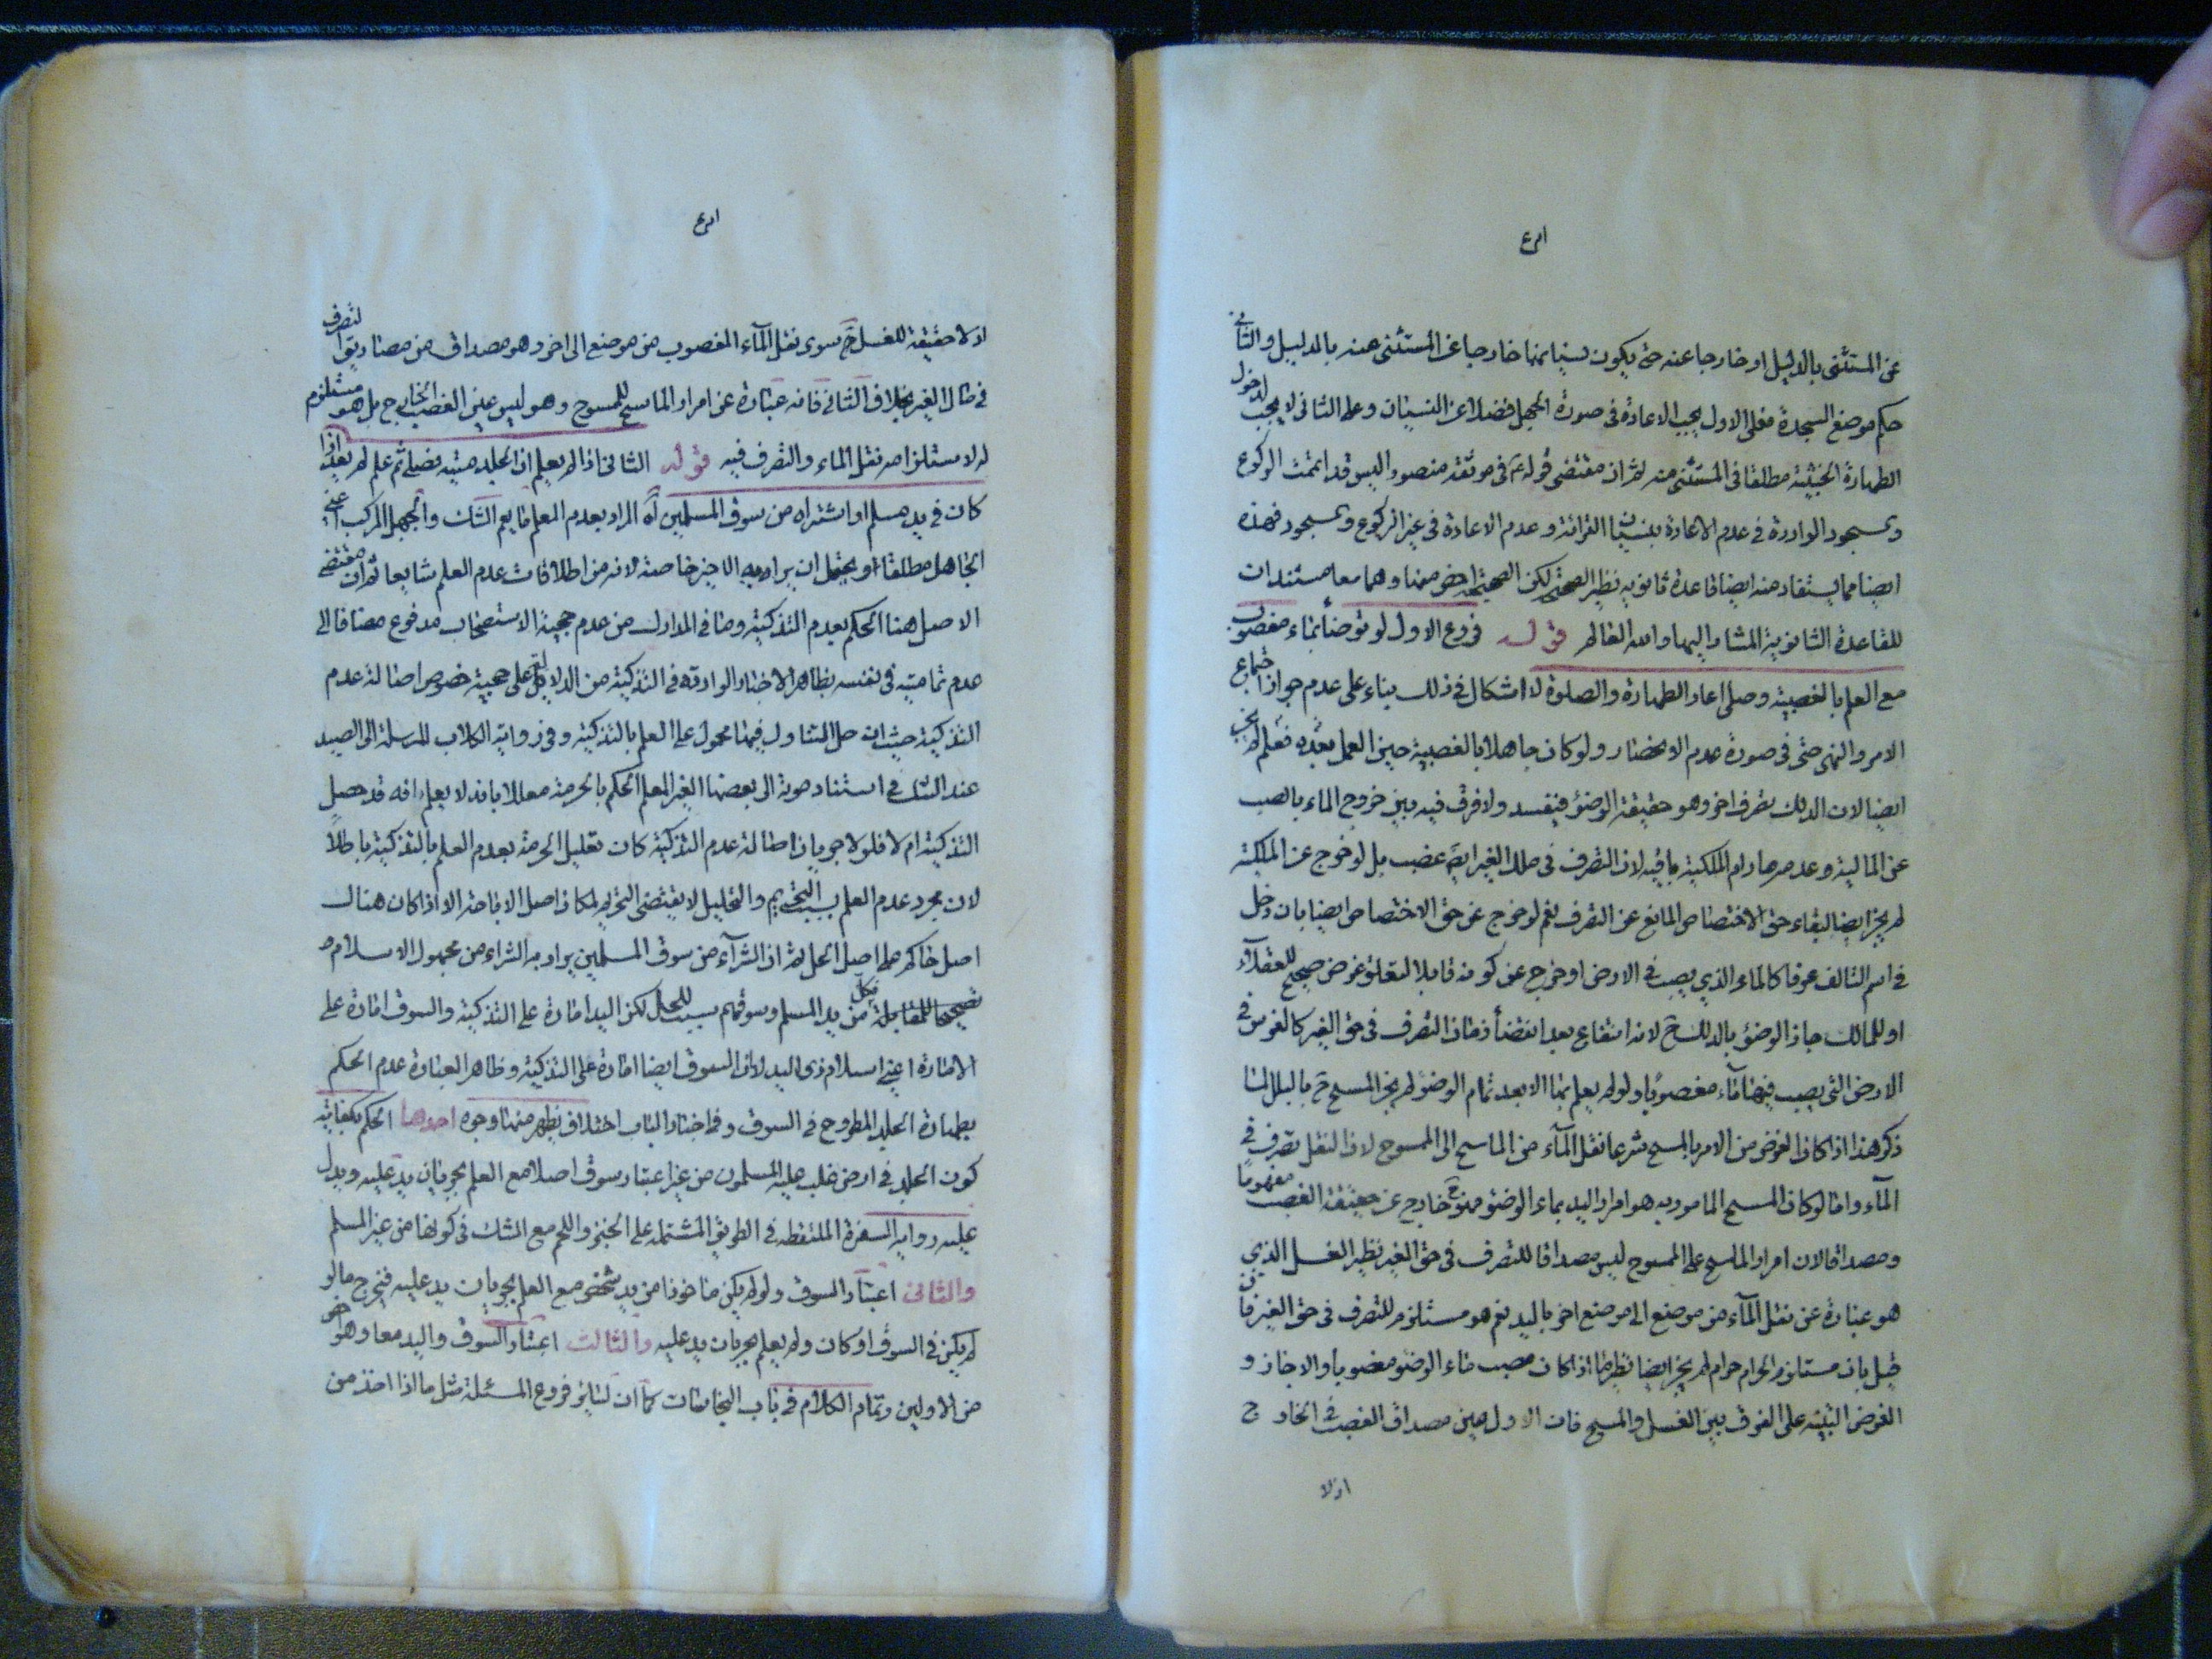 عن المستثنى بالدليل او خارجا عنه حتى يكون نسيانها خارجا عن المستثنى منه بالدليل والثاني
حكم موضع السجدة فعلى الاول يجب الاعادة في صورة الجهل فضلا عن النسيان وعلى الثاني لا يجب لدخول
الطهارة الخبثية مطلقا في المستثنى منه ثم ان مقتضى قوله ع في موثقة منصور اليس قد اتممت الركوع
والسجود الواردة في عدم الاعادة بنسيان القرائة وعدم الاعادة في غير الركوع والسجود فهذه
ايضا مما يستفاد منه ايضا قاعدة ثانوية نظير الصحيحة لكن الصحيحة اخص منها وهما معا مستندان
للقاعدة الثانوية المشار اليها والله العالم قوله فروع الاول لو توضأ بماء مغصوب
مع العلم بالغصبية وصلى اعاد الطهارة والصلوة لا اشكال في ذلك بناء على عدم جواز اجتماع
الامر والنهى حتى في صورة عدم الانحصار ولو كان جاهلا بالغصبية حين العمل فعلم لم يجب
ايضا لان الدلك تصرف اخر وهو حقيقة الوضوء فيفسد ولا فرق فيه بين خروج الماء بالصب
عن المالية وعدمه ما دام الملكية باقية لان التصرف في ملك الغير ايضا غصب بل لو خرج عن الملكية
لم يجز ايضا لبقاء حق الاختصاص المانع عن التصرف نعم لو خرج عن حق الاختصاص ايضا بان دخل
في اسم التالف عرفا كالماء الذي يصب في الارض او خرج عن كونه قابلا لتعلق غرض صحيح للعقلاء
او للمالك جاز الوضوء بالدلك ح لانه انتفاع بعد انقضاء زمان التصرف في حق الغير كالغرس في
الارض التى يصب فيها ماء مغصوبا ولو لم يعلم بها الا بعد تمام الوضوء لم يجز المسح ح بالبلل لما
ذكر هذا اذا كان الغرض من الامر بالمسح شرعا نقل الماء من الماسح الى الممسوح لان النقل تصرف في
الماء واما لو كان المسح المامور به هو امرار اليد بماء الوضوء فهو ح خارج عن حقيقة الغصب مفهوما
ومصداقا لان امرار الماسح على الممسوح ليس مصداقا للتصرف في حق الغير نظير الغسل الذي
هو عبارة عن نقل الماء من موضع الى موضع اخر باليد نعم هو مستلزم للتصرف في حق الغير فان
قيل بان مستلزم الحرام حرام لم يجز ايضا نظير ما اذا كان مصب ماء الوضوء مغصوبا والا جاز و
الغرض التنبيه على الفرق بين الغسل والمسح فان الاول عين مصداق الغصب في الخارج
اذلا
اذ لا حقيقة للغسل ح سوى نقل الماء المغصوب من موضع الى اخر وهو مصداق من مصاديق التصرف
في مال الغير بخلاف الثاني فانه عبارة عن امرار الماسح للممسوح وهو ليس عين الغصب في الخارج بل هو مستلزم
له لاستلزامه نقل الماء والتصرف فيه قوله الثانى اذا لم يعلم ان الجلد ميتة فصلى ثم علم لم يعد اذا
كان في يد مسلم او اشتراه من سوق المسلمين اه المراد بعدم العلم ما يعم الشك والجهل المركب اعنى
الجاهل مطلقا او يحتمل ان يراد به الاخير خاصة لانه من اطلاقات عدم العلم شايعا ثم ان مقتضى
الاصل هنا الحكم بعدم التذكية وما في المدارك من عدم حجية الاستصحاب مدفوع مضافا الى
عدم تماميته في نفسه بظاهر الاخبار الواردة في التذكية من الدلالة على حجية خصوص اصالة عدم
التذكية حيث ان حل التناول فيها محمول على العلم بالتذكية وفي رواية الكلاب المرسلة الى الصيد
عند الشك في استناد موته الى بعضها الغير المعلم الحكم بالحرمة معللا بانه لا يعلم انه قد حصل
التذكية ام لا فلولا جريان اصالة عدم التذكية كان تعليل الحرمة بعدم العلم بالتذكية باطلا
لان مجرد عدم العلم بسبب التحريم والتحليل لا يقتضى التحريم لمكان اصل الاباحة الا اذا كان هناك
اصل حاكم على اصل الحل ثم ان الشراء من سوق المسلمين يراد به الشراء من مجهول الاسلام
تصحيحا للمقابلة فكل من يد المسلم وسوقهم سبب للحل لكن اليد امارة على التذكية والسوق امارة على
الامارة اعنى اسلام ذى اليد لا ان السوق ايضا امارة على التذكية وظاهر العبارة عدم الحكم
بطهارة الجلد المطروح في السوق وفى اخبار الباب اختلاف يظهر منها وجوه احدها الحكم بكفاية
كون الجلد في ارض غلب عليه المسلمون من غير اعتبار سوق اصلا مع العلم بجريان يد عليه ويدل
عليه رواية السفرة الملتقطة في الطريق المشتملة على الخبز واللحم مع الشك في كونها من غير المسلم
والثانى اعتبار السوق ولو لم يكن ماخوذا من يد شخص مع العلم بجريان يد عليه فيخرج ما لو
لم يكن في السوق او كان ولم يعلم بجريان يد عليه والثالث اعتبار السوق واليد معا وهو اخص
من الاولين وتمام الكلام في باب النجاسات كما ان لساير فروع المسئلة مثل ما اذا اخذ من